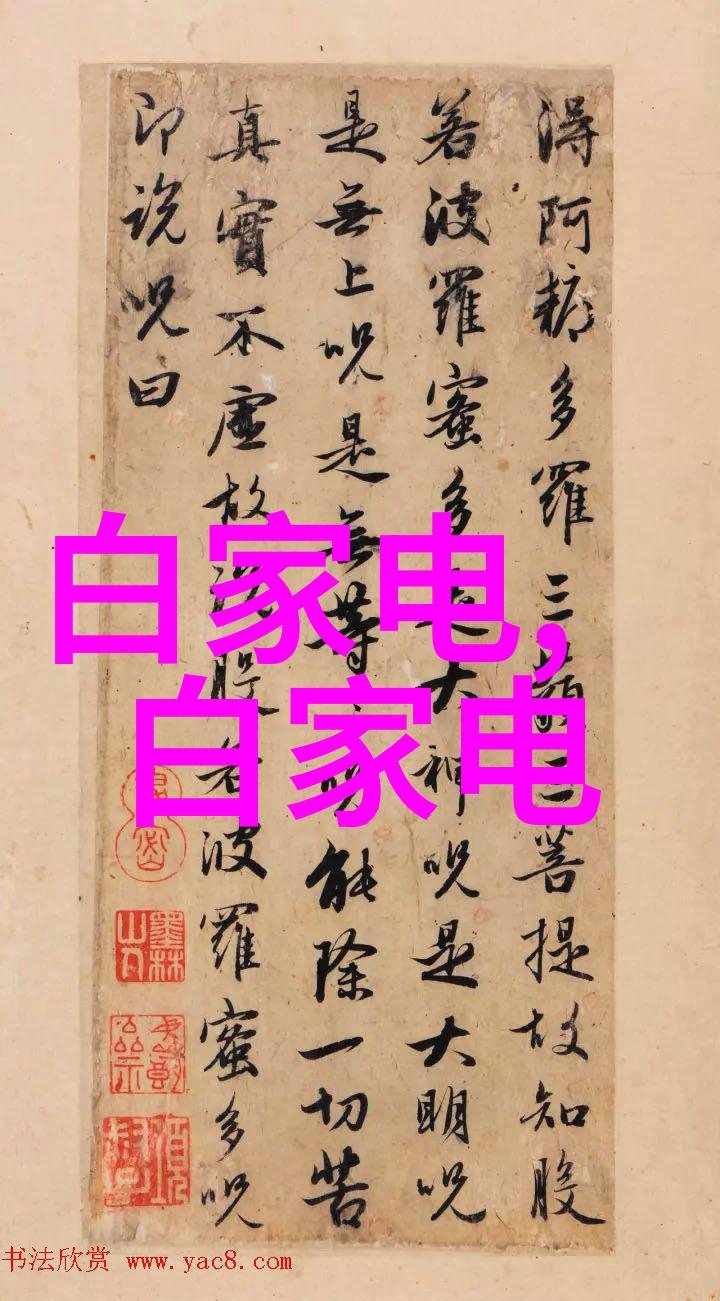 得阿耨多羅三藐三菩提故知般
若波羅蜜多是大神呪是大明呪
是無上呪是無等〻呪能除一切苦
真實不虛故說般若波羅蜜多呪
即說呪曰
白家电,
白家电
墨林山人
书法欣赏 www.yac8.com